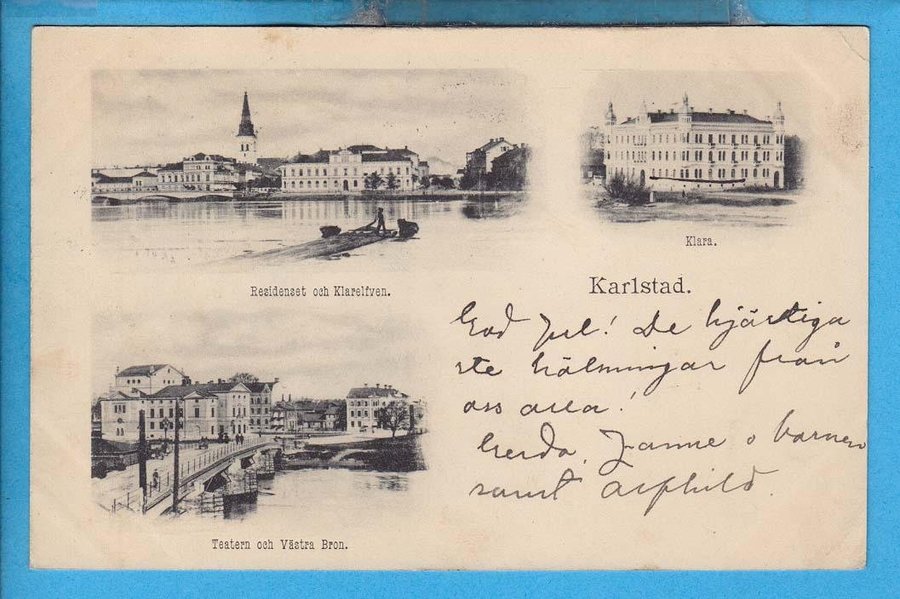 Residenset och Klarelfven.
Klara.
Karlstad.
God Jul! De hjärtiga
ste hälsningar från
oss alla!
Gerda, Janne o barnen
samt Alfhild.
Teatern och Västra Bron.